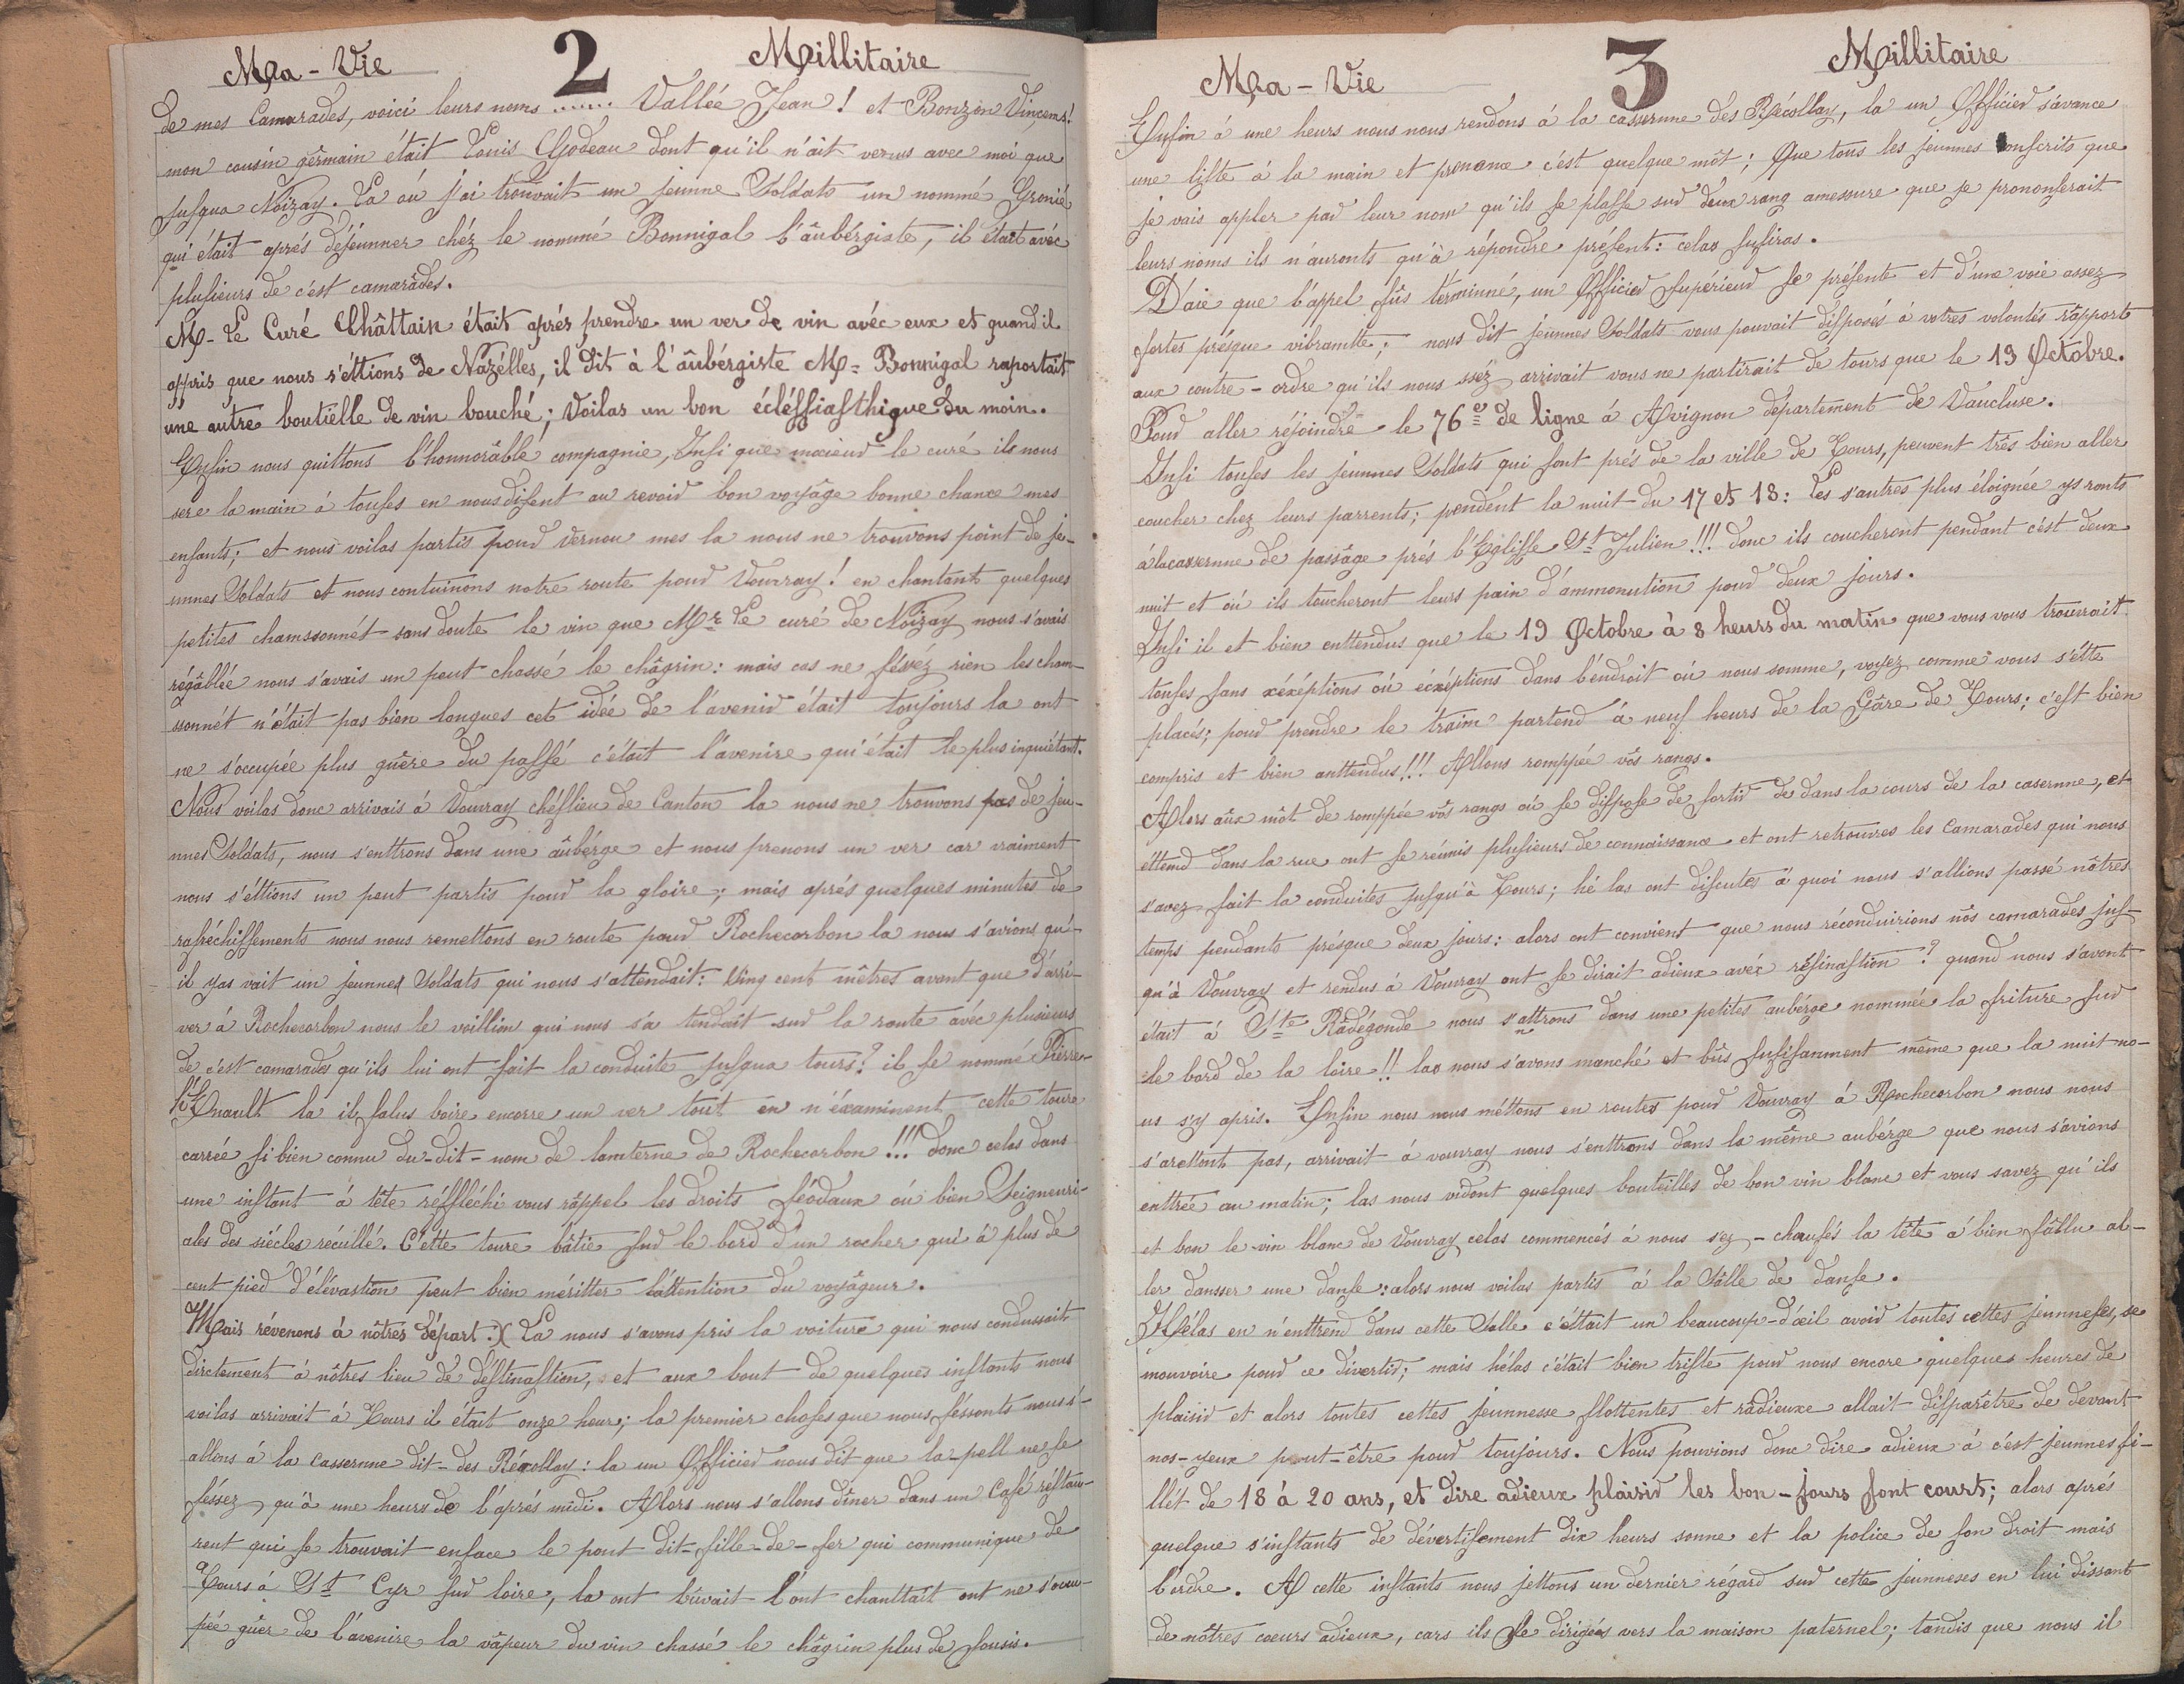 Ma - Vie 2 Millitaire
de mes Camarades, voici leurs noms ....... Vallée Jean ! et Bonzon Vinçems!
mon cousin gêrmain était Louis Godeau dont qu'il n'ait venus avec moi que
jusqua Noizay. La ou j'ai trouvait un jeunne Soldats un nommé Gronié
qui était aprés déjeunner chéz le nommé Bonnigal l'aûbérgiste, il était avéc
plusieurs de c'est camarâdes.
M- Le Curé Châttain était aprés prendre un ver de vin avéc eux et quand il
appris que nous s'éttions de Nazélles, il dit à l'aûbérgiste M= Bonnigal raportait
une autre boutiëlle de vin bouché; Voilas un bon écléssiasthique du moin.
Ensin nous quittons l'honnorâble compagnie, Insi que mocieud le curé ils nous
sere la main à touses en nous disent au revoid bon voyâge bonne chance mes
enfants; et nous voilas partis poud vernou mes la nous ne trouvons point de je-
unnes Soldats et nous contuinons notre route poud Vouvray ! en chantant quelques
petites chamssonnét sans doute le vin que Mr Le curé de Noizay nous s'avais
régâblée nous s'avais un peut chassé le châgrin : mais cas ne féséz rien les cham-
ssonnét n'était pas bien longues cet idée de l'avenid était toujours la ont
ne s'occupée plus guêre du passé c'était l'avenire qui était le plus inquiétant.
Nous voilas donc arrivais á Vouvray chéflieu de Canton la nous ne trouvons pas de jeu-
nnes Soldats, nous s'enttrons dans une aûbérge et nous prenons un ver car vraiment
nous s'éttions un peut partis poud la gloire ; mais aprés quelques minutes de
rafréchissements nous nous remettons en route poud Rochecorbon la nous s'avions qu'-
il yas vait un jeunnes Soldats qui nous s'attendait : Cinq cent mêtres avant que d'arri-
ver á Rochecorbon nous le voillion qui nous s'a tendait sud la route avéc plusieurs
de c'est camarades qu'ils lui ont fait la conduite jusqua tours? il se nommé Pierre-
hEnault la il falus boire encorre un ver tout en n'éxaminent cette toure
carrée si bien connu du-dit-nom de lamterne de Rochecorbon !!! Donc celas dans
une instant à tête réffléchi vous râppel les droits féodaux oú bien Seigneuri-
ales des siécles récuillé. C'ette toure bâtie sud le bord d'un rocher qui à plus de
cent pied d'élévastion peut bien méritter l'attention du voyâgeur.
Mais révenons á nôtres départ :)( La nous s'avons pris la voiture qui nous conduisait
dirctement à nôtres lieu de déstinastion, et aux bout de quelques instants nous
voilas arrivait á Tours il était onze heur; la premier choses que nous féssonts nous s'-
allons á la Cassernne dit-des Récollay : la un Officied nous dit que la-pell ne se
féssez qu'à une heurs de l'aprés midi. Alors nous s'allons dîner dans un Café réstau-
rent qui se trouvait enface le pont dit-fille-de-fer qui communique de
Tours á St Cyr sud loire, la ont buvait l'ont chanttait ont ne s'ocu-
pée guêr de l'avenire la vâpeur du vin chassé le châgrin plus de sousis.
Ma - Vie 3 Millitaire
Ensin á une heurs nous nous rendons á la casernne des Récollay, la un Officied s'avance
une liste à la main et prenonce c'est quelque môt ; Que tous les jeunnes Conscrits que
je vais appler pad leur nom qu'ils se plasse sud deux rang amessure que je prononserait
leurs noms ils n'auronts qu'à répondre présent : celas susiras.
D'aie que l'appel fûs términné, un Officied supérieud se présente et d'une voie assez
fortes présque vibramtte ; nous dit jeunnes Soldats vous pouvait disposés à votres volontés rapport
aux contre-ordre qu'ils nous sséz arrivait vous ne partirait de tours que le 19 Octobre.
Poud aller réjoindre le 76e de ligne á Avignon département de Vaucluse.
Insi touses les jeunnes Soldats qui sont prés de la ville de Tours, peuvent trés bien aller
coucher chez leurs parrents; pendent la nuit du 17 et 18 : Les s'autres plus éloignée ys ronts
á la cassernne de passâge prés l'Eglisse St Julien !!! donc ils coucheront pendant c'est deux
nuit et oú ils toucheront leurs pain d'ammonution poud deux jours.
Insi il et bien enttendus que le 19 Octobre à 8 heurs du matin que vous vous trouvrait
touses sans xéxéptions oú écxéptions dans l'éndroit oú nous somme, voyez comme vous s'étte
placés; poud prendre le traim partend á neuf heurs de la Gâre de Tours; c'est bien
compris et bien anttendus !!! Allons romppée vôs rangs.
Alors aûx môt de romppée vôs rangs oú se dispose de sortid de dans la cours de la casernne, et
éttend dans la rue ont se réunis plusieurs de connaissance et ont retrouves les Camarades qui nous
s'avez fait la conduites jusqu'à Tours; hé las ont discutes á quoi nous s'allions passé nôtres
temps pendants présque deux jours : alors ont convient que nous réconduirions nôs camarades jus-
qu'à Vouvray et rendus á Vouvray ont se dirait adieux avéx résinastion ? quand nous s'avont
était á Ste Râdégonde nous s'anttrons dans une petites aubérge nommée la friture sud
le bord de la loire !! las nous s'avons manché et bûs susisanment même que la nuit no-
us s'y apris. Ensin nous nous méttons en routes poud Vouvray á Rochecorbon nous nous
s'arettont pas, arrivait á vouvray nous s'enttrons dans la même aubérge que nous s'avions
enttrée au matin; las nous vidont quelques bouteilles de bon vin blanc et vous savez qu'ils
et bon le vin blanc de Vouvray celas commencés á nous s'ez-chaufés la tête á bien fâllu al-
ler dansser une danse : alors nous voilas partis á la Sâlle de danse.
Hélas en n'enttrend dans cette Salle c'éttait un beaucoup-d'oeil avoid toutes cettes jeunneses, se
mouvoire poud ce divertid; mais hélas c'était bien triste poud nous encore quelques heures de
plaisid et alors toutes cettes jeunnesse flottentes et râdieuxe allait disparêtre de devant
nos-yeux peut-être poud toujours. Nous pouvions donc dire adieux à c'est jeunnes fi-
llét de 18 à 20 ans, et dire adieux plaisid les bon-jours sont court; alors aprés
quelque s'instants de dévertisement dix heurs sonne et la police de son droit mais
l'ordre. A cette instants nous jettons un dernier régard sud cette jeunneses en lui dissant
de nôtres coeurs adieux, cars ils se dirigées vers la maison paternel; tandis que nous il